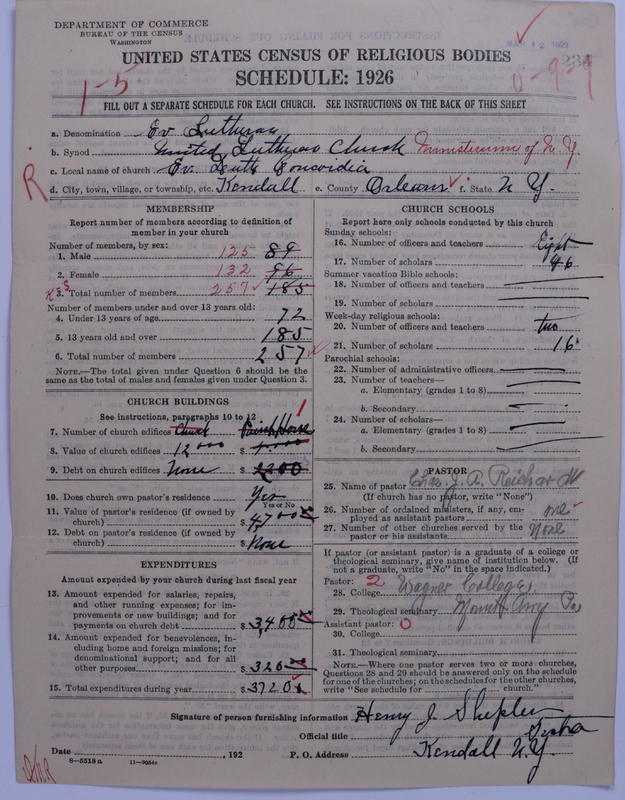 DEPARTMENT OF COMMERCE
BUREAU OF THE CENSUS
WASHINGTON
MAR 12 1929
UNITED STATES CENSUS OF RELIGIOUS BODIES
SCHEDULE: 1926
1-5
0-9-9
FILL OUT A SEPARATE SCHEDULE FOR EACH CHURCH. SEE INSTRUCTIONS ON THE BACK OF THIS SHEET
a. Denomination Ev Lutheran
b. Synod United Lutheran Church Ministerium of N Y.
c. Local name of church Ev Luth Concordia
R
d. City, town, village, or township, etc. Kendall e. County Orleans f. State N Y.
MEMBERSHIP
Report number of members according to definition of
member in your church
Number of members, by sex:
1. Male 125 89
2. Female 132 96
3. Total number of members 257 185
Number of members under and over 13 years old:
4. Under 13 years of age 72
5. 13 years old and over 185
6. Total number of members 257
NOTE.—The total given under Question 6 should be
same as the total of males and females given under Question 3.
CHURCH BUILDINGS
See instructions, paragraphs 10 to 12
7. Number of church edifices Church Parish House 1
8. Value of church edifices 12000 $
9. Debt on church edifices None $ 2200
10. Does church own pastor's residence Yes
Yes or No
11. Value of pastor's residence (if owned by
church) $ 4700
12. Debt on pastor's residence (if owned by
church) $ None
EXPENDITURES
Amount expended by your church during last fiscal year
13. Amount expended for salaries, repairs,
and other running expenses; for im-
provements or new buildings; and for
payments on church debt $ 3400
14. Amount expended for benevolences, in-
cluding home and foreign missions; for
denominational support; and for all
other purposes $ 320
15. Total expenditures during year $ 3720
CHURCH SCHOOLS
Report here only schools conducted by this church
Sunday schools:
16. Number of officers and teachers Eight
17. Number of scholars 46
Summer vacation Bible schools:
18. Number of officers and teachers
19. Number of scholars
Week-day religious schools:
20. Number of officers and teachers two
21. Number of scholars 16
Parochial schools:
22. Number of administrative officers
23. Number of teachers—
a. Elementary (grades 1 to 8)
b. Secondary
24. Number of scholars—
a. Elementary (grades 1 to 8)
b. Secondary
PASTOR
25. Name of pastor Chas. J. A. Reichardt
(If church has no pastor, write "None")
26. Number of ordained ministers, if any, em-
ployed as assistant pastors one
27. Number of other churches served by the
pastor or his assistants None
If pastor (or assistant pastor) is a graduate of a college or
theological seminary, give name of institution below. (If
not a graduate, write "No" in the space indicated.)
Pastor: 2
28. College Wagner College
29. Theological seminary Mount Airy Pa
Assistant pastor: 0
30. College
31. Theological seminary
NOTE.—Where one pastor serves two or more churches,
Questions 28 and 29 should be answered only on the schedule
for one of the churches; on the schedules for the other churches,
write "See schedule for church."
Signature of person furnishing information Henry J. Shepler
Official title
Date , 192 P. O. Address Kendall N.Y.
8—5518 a 11—9054